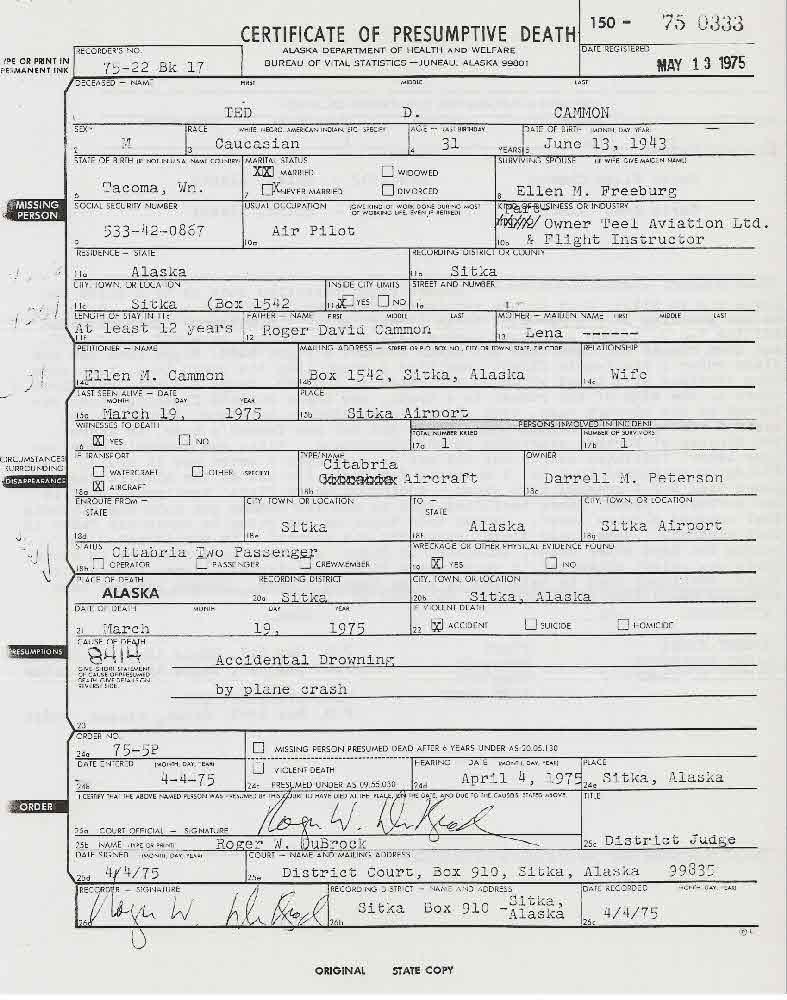 CERTIFICATE OF PRESUMPTIVE DEATH
150 - 75 0333
ALASKA DEPARTMENT OF HEALTH AND WELFARE
BUREAU OF VITAL STATISTICS — JUNEAU, ALASKA 99801
TYPE OR PRINT IN
PERMANENT INK
RECORDER'S NO.
75-22 Bk 17
DATE REGISTERED
MAY 13 1975
DECEASED — NAME FIRST MIDDLE LAST
1 TED D. CAMMON
SEX
2 M
RACE WHITE, NEGRO, AMERICAN INDIAN, ETC. SPECIFY
3 Caucasian
AGE — LAST BIRTHDAY
4 31 YEARS
DATE OF BIRTH (MONTH, DAY, YEAR)
5 June 13, 1943
STATE OF BIRTH (IF NOT IN U.S.A. NAME COUNTRY)
6 Tacoma, Wn.
MARITAL STATUS
7 XX MARRIED WIDOWED
NEVER MARRIED DIVORCED
SURVIVING SPOUSE (IF WIFE GIVE MAIDEN NAME)
8 Ellen M. Freeburg
MISSING
PERSON
SOCIAL SECURITY NUMBER
9 533-42-0867
USUAL OCCUPATION GIVE KIND OF WORK DONE DURING MOST
OF WORKING LIFE, EVEN IF RETIRED)
10a Air Pilot
KIND OF BUSINESS OR INDUSTRY
Part
Owner Teel Aviation Ltd.
10b & Flight Instructor
RESIDENCE — STATE
11a Alaska
RECORDING DISTRICT OR COUNTY
11b Sitka
CITY, TOWN, OR LOCATION
11c Sitka (Box 1542
INSIDE CITY LIMITS
11d X YES NO
STREET AND NUMBER
LENGTH OF STAY IN 11c
At least 12 years
11f
FATHER — NAME FIRST MIDDLE LAST
12 Roger David Cammon
MOTHER — MAIDEN NAME FIRST MIDDLE LAST
13 Lena ------
PETITIONER — NAME
14a Ellen M. Cammon
MAILING ADDRESS — STREET OR P.O. BOX NO., CITY OR TOWN, STATE, ZIP CODE
14b Box 1542, Sitka, Alaska
RELATIONSHIP
14c Wife
LAST SEEN ALIVE — DATE
MONTH DAY YEAR
15a March 19, 1975
PLACE
15b Sitka Airport
WITNESSES TO DEATH
16 X YES NO
PERSONS INVOLVED IN INCIDENT
TOTAL NUMBER KILLED
17a 1
NUMBER OF SURVIVORS
17b 1
CIRCUMSTANCES
SURROUNDING
DISAPPEARANCE
IF TRANSPORT
WATERCRAFT OTHER (SPECIFY)
18a X AIRCRAFT
TYPE/NAME
Citabria
Aircraft
18b
OWNER
Darrell M. Peterson
18c
ENROUTE FROM —
STATE
18d
CITY, TOWN, OR LOCATION
Sitka
18e
TO —
STATE
Alaska
18f
CITY, TOWN, OR LOCATION
Sitka Airport
18g
STATUS Citabria Two Passenger
18h OPERATOR PASSENGER CREWMEMBER
WRECKAGE OR OTHER PHYSICAL EVIDENCE FOUND
19 X YES NO
PLACE OF DEATH
ALASKA
RECORDING DISTRICT
20a Sitka
CITY, TOWN, OR LOCATION
20b Sitka, Alaska
DATE OF DEATH MONTH DAY YEAR
21 March 19, 1975
IF VIOLENT DEATH
22 X ACCIDENT SUICIDE HOMICIDE
PRESUMPTIONS
CAUSE OF DEATH
8414
GIVE SHORT STATEMENT
OF CAUSE OF PRESUMED
DEATH. GIVE DETAILS ON
REVERSE SIDE.
Accidental Drowning
by plane crash
23
ORDER NO.
24a 75-5P
MISSING PERSON PRESUMED DEAD AFTER 6 YEARS UNDER AS 20.05.130
DATE ENTERED (MONTH, DAY, YEAR)
4-4-75
24b
VIOLENT DEATH
24c PRESUMED UNDER AS 09.55.030
HEARING DATE (MONTH, DAY, YEAR)
24d April 4, 1975
PLACE
24e Sitka, Alaska
ORDER
I CERTIFY THAT THE ABOVE NAMED PERSON WAS PRESUMED BY THIS COURT TO HAVE DIED AT THE PLACE, ON THE DATE, AND DUE TO THE CAUSE(S) STATED ABOVE.
Roger W. DuBrock
25a COURT OFFICIAL — SIGNATURE
TITLE
25c District Judge
25b NAME (TYPE OR PRINT) Roger W. DuBrock
DATE SIGNED (MONTH, DAY, YEAR)
25d 4/4/75
COURT — NAME AND MAILING ADDRESS
25e District Court, Box 910, Sitka, Alaska 99835
RECORDER — SIGNATURE
26a Roger W DuBrock
RECORDING DISTRICT — NAME AND ADDRESS
26b Sitka Box 910 - Sitka,
Alaska
DATE RECORDED (MONTH, DAY, YEAR)
26c 4/4/75
ORIGINAL STATE COPY